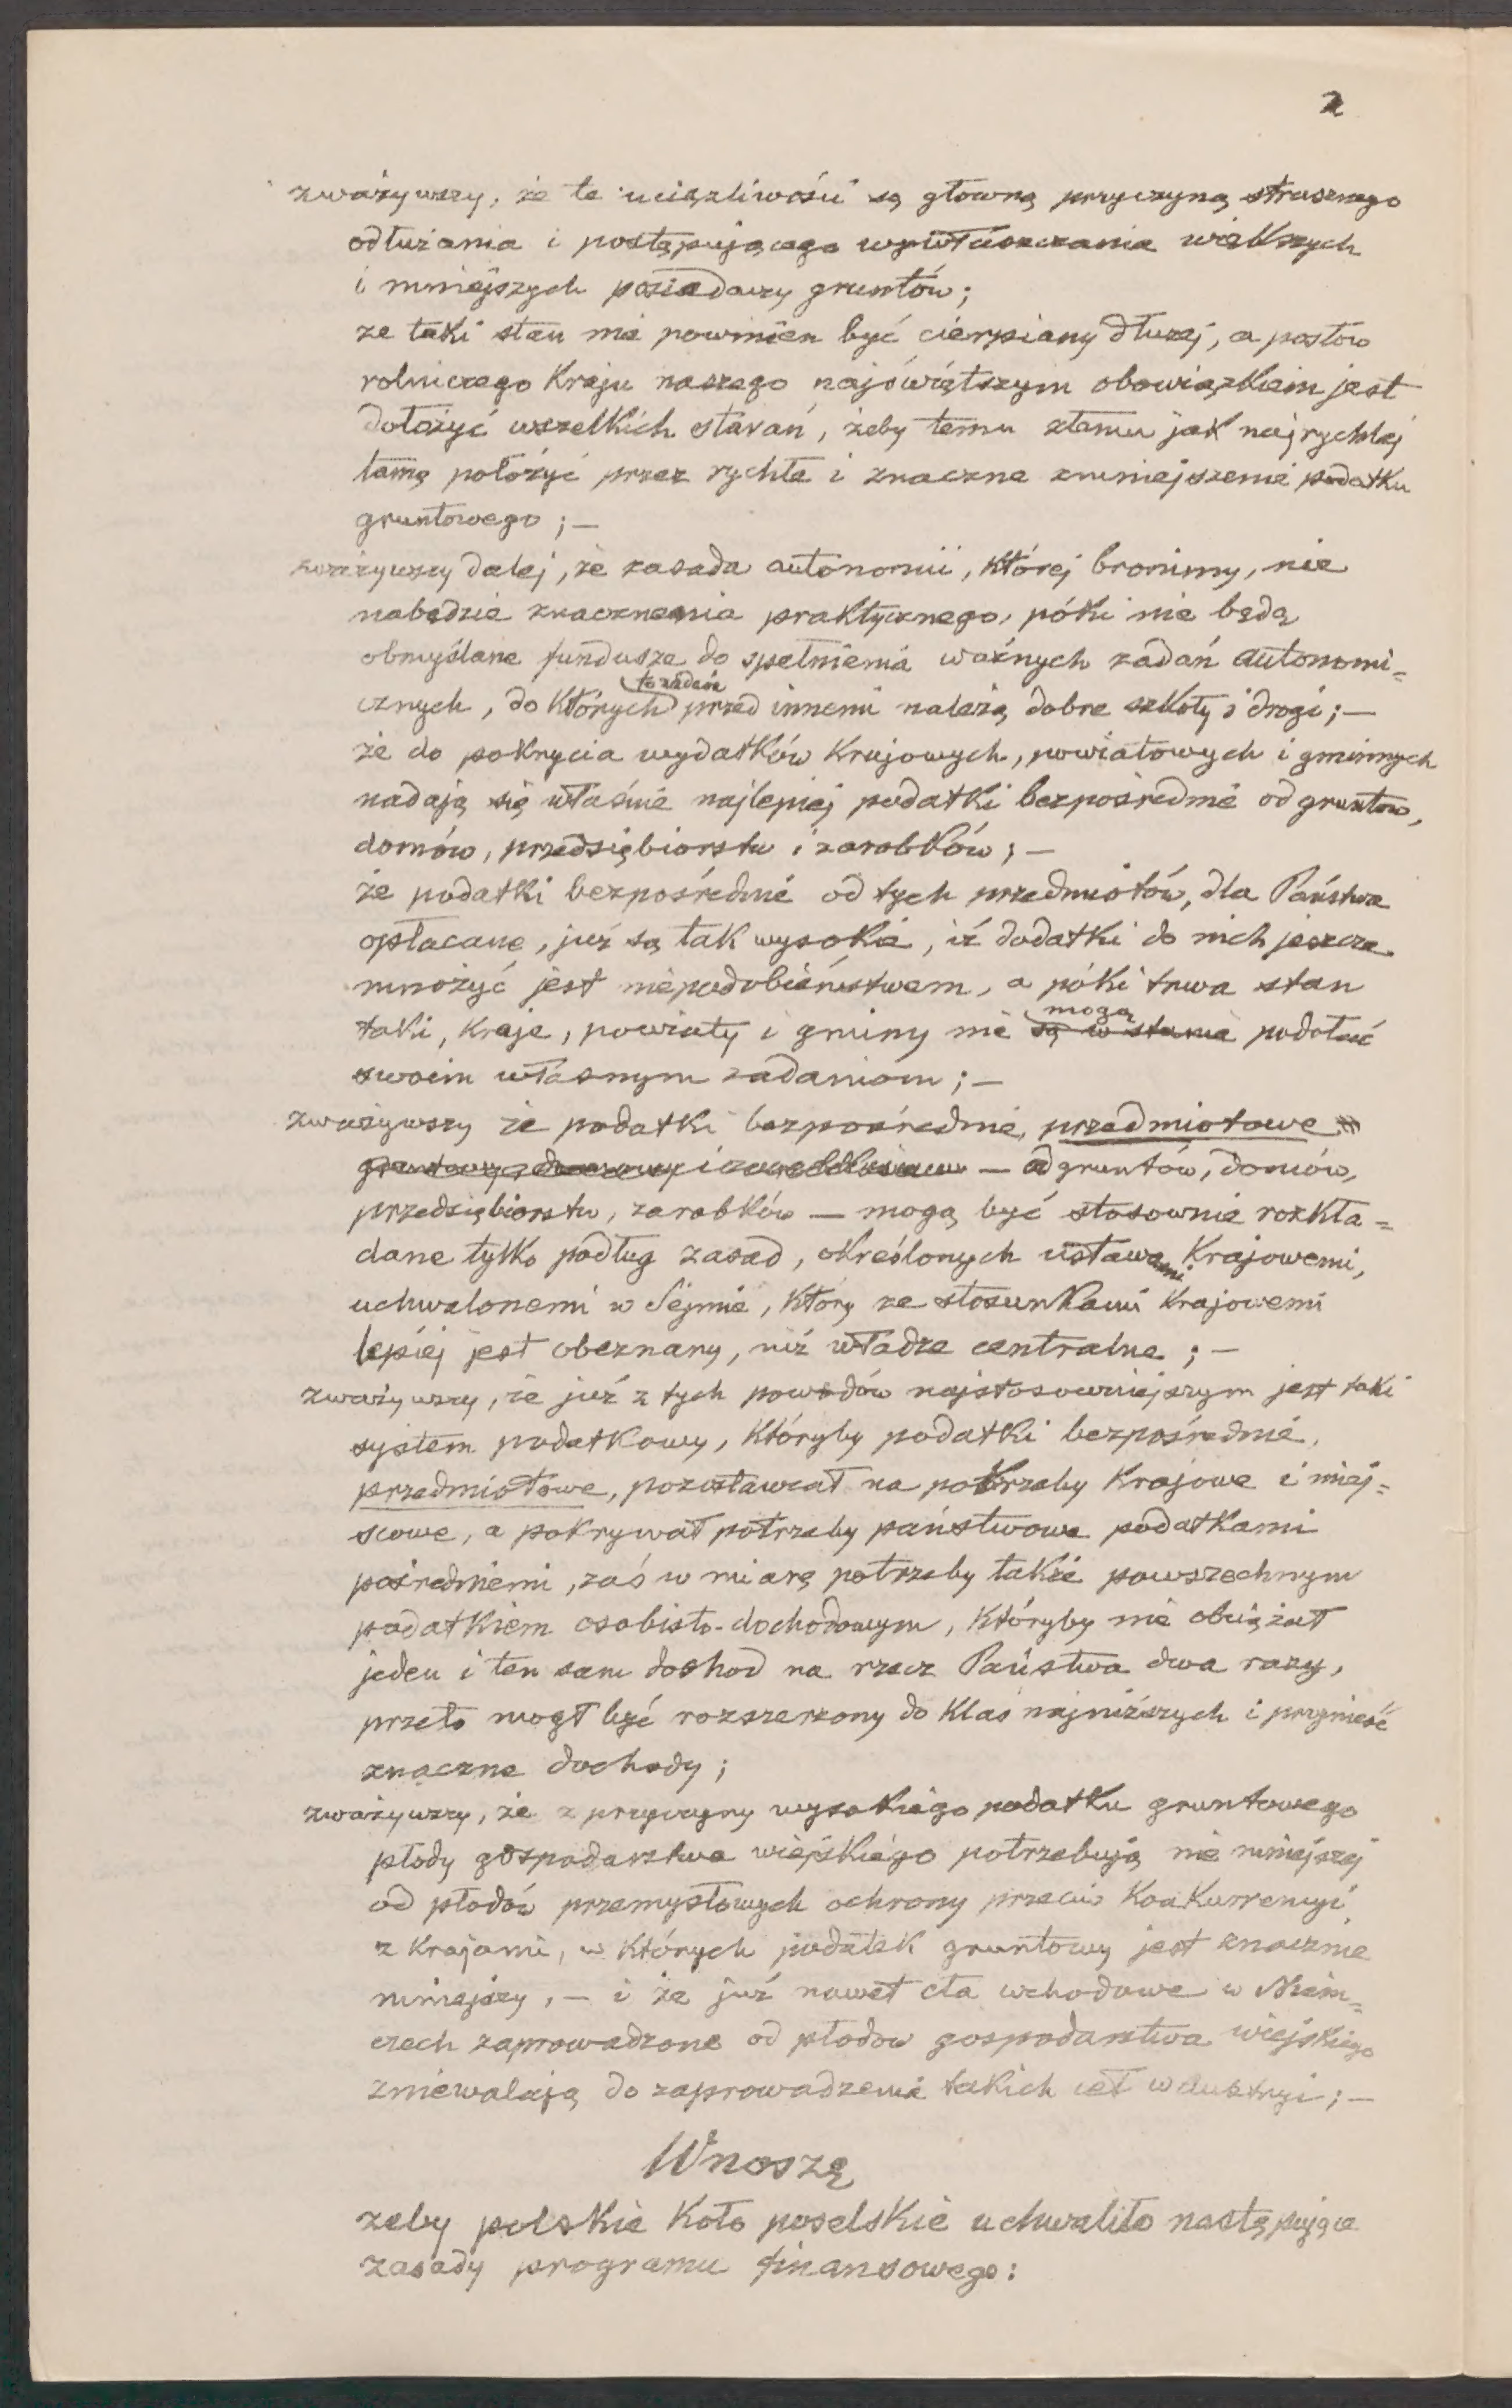 2
zważywszy, że te uciążliwości są główną przyczyną strasznego
odłużania i postępującego wywłaszczania większych
i mniejszych posiadaczy gruntów;
że taki stan nie powinien być cierpiany dłużej, a posłów
rolniczego Kraju naszego najświętszym obowiązkiem jest
dołożyć wszelkich starań, żeby temu złemu jak najrychlej
tamę położyć przez rychłe i znaczne zmniejszenie podatku
gruntowego ; —
zważywszy dalej, że zasada autonomii, której bronimy, nie
nabędzie znaczenia praktycznego, póki nie będą
obmyślane fundusze do spełnienia ważnych zadań autonomi=
cznych, do których przed innemi należą dobre szkoły i drogi; —
że do pokrycia wydatków Krajowych, powiatowych i gminnych
nadają się właśnie najlepiej podatki bezpośrednie od gruntów,
domów, przedsiębiorstw i zarobków; —
że podatki bezpośrednie od tych przedmiotów, dla Państwa
opłacane, już są tak wysokie, iż dodatki do nich jeszcze
mnożyć jest niepodobieństwem, a póki trwa stan
mogą
taki, Kraje, powiaty i gminy nie są w stanie podołać
swoim własnym zadaniom; —
zważywszy że podatki bezpośrednie, przedmiotowe
— od gruntów, domów,
przedsiębiorstw, zarobków — mogą być stosownie rozkła=
dane tylko podług zasad, określonych ustawami Krajowemi,
uchwalonemi w Sejmie, który ze stosunkami Krajowemi
lepiej jest obeznany, niż władze centralne ; —
zważywszy, że już z tych powodów najstosowniejszym jest taki
system podatkowy, któryby podatki bezpośrednie,
przedmiotowe, pozostawiał na potrzeby Krajowe i miej=
scowe, a pokrywał potrzeby państwowe podatkami
pośredniemi, zaś w miarę potrzeby także powszechnym
podatkiem osobisto-dochodowym, któryby nie obciążał
jeden i ten sam dochod na rzecz Państwa dwa razy,
przeto mogł być rozszerzony do klas najniższych i przynieść
znaczne dochody;
zważywszy, że z przyczyny wysokiego podatku gruntowego
płody gospodarstwa wiejskiego potrzebują nie mniejszej
od płodów przemysłowych ochrony przeciw Konkurrencyi
z Krajami, w których podatek gruntowy jest znacznie
mniejszy, — i że już nawet cła wchodowe w Niem=
czech zaprowadzone od płodów gospodarstwa wiejskiego
zniewalają do zaprowadzenia takich ceł w Austryi; —
Wnoszę
żeby polskie Koło poselskie uchwaliło następujące
zasady programu finansowego: